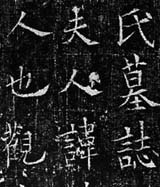 氏墓誌
夫人諱
人也觀